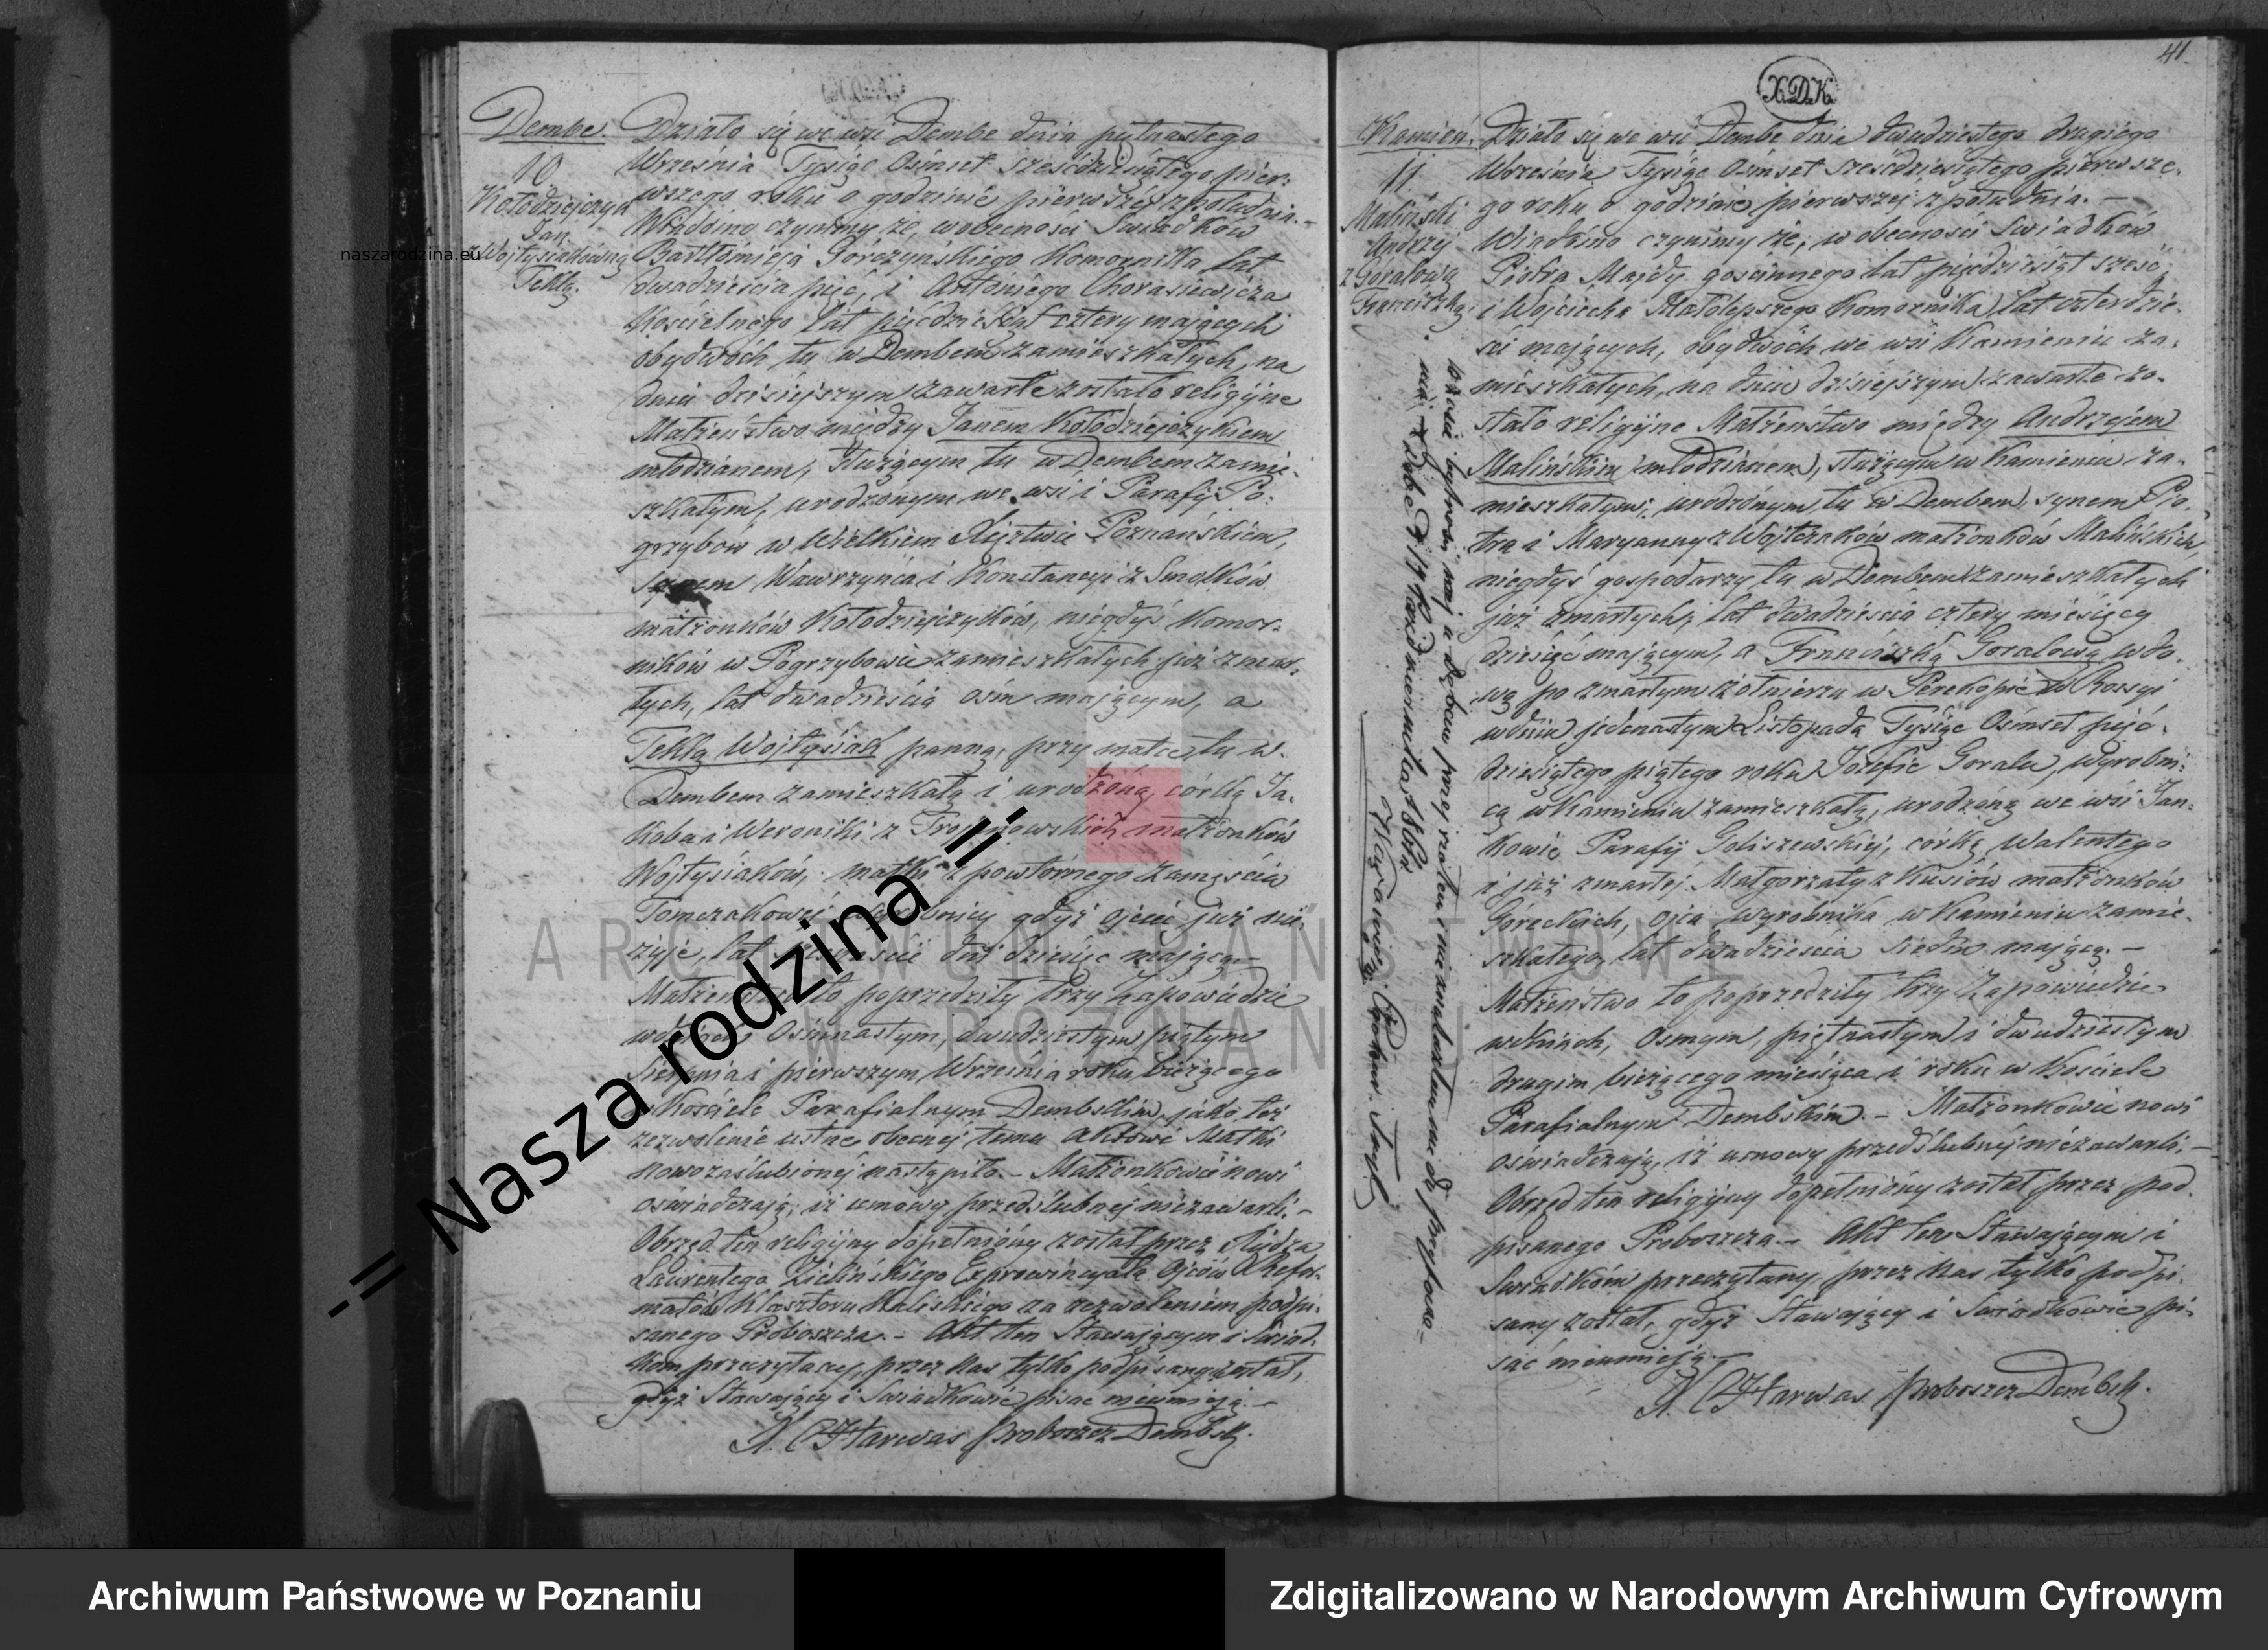 Dembe.
10
Kołodziejczyk
Jan
z Wojtysiakówną
Teklą.
Działo się we wsi Dembe dnia piętnastego
Września Tysiąc Ośmset sześćdziesiątego pier-
wszego roku o godzinie pierwszéj z południa. —
Wiadomo czynimy że, w obecności Świadków
Bartłomieja Górczyńskiego Komornika lat
dwadzieścia pięć, i Antoniego Chorasiewicza
Kościelnego lat pięćdziesiąt cztery mających
obydwóch tu w Dembem zamieszkałych, na
dniu dzisiejszym zawarte zostało religijne
Małżeństwo między Janem Kołodziejczykiem
młodzianem, służącym tu w Dembem zamie-
szkałym, urodzonym we wsi i Parafij Po-
grzybow w Wielkiem Xięztwie Poznańskiém,
synem Wawrzyńca i Konstancyi z Smolków
małżonków Kołodziejczyków, niegdyś Komor-
ników w Pogrzybowie zamieszkałych już zmar-
łych, lat dwadzieścia ośm mającym, a
Teklą Wojtysiak panną, przy matce tu w
Dembem zamieszkałą i urodzoną, córką Ja-
koba i Weroniki z Trojanowskich małżonków
Wojtysiaków, matki z powtórnego zamęścia
Tomczakowéj wyrobnicy gdyż ojciec już nie
żyje, lat dni dziesięć mającą —
Małżeństwo to poprzedziły trzy Zapowiedzie
w dniach Ośmnastym, dwudziestym piątym
Sierpnia i pierwszym Września roku bieżącego
w Kościele Parafialnym Dembskim, jako też
zezwolenie ustne obecnéj temu aktowi Matki
nowozaślubionéj nastąpiło. — Małżonkowie nowi
oświadczają, iż umowy przedślubnéj niezawarli. —
Obrzęd ten religijny dopełniony został przez Xiędza
Laurentego Zielińskiego Exprowincyała Ojców Xrefor-
matów Klasztoru Kaliskiego za zezwoleniem podpi-
sanego Proboszcza. — Akt ten Stawającym i Świad-
kom przeczytany, przez Nas tylko podpisany został,
gdyż Stawający i Świadkowie pisać nieumieją. —
X. Harwas Proboszcz Dembsk.
41.
X.D.K.
Kamień.
11.
Maliński
Andrzej
z Goralową
Franciszką.
Działo się we wsi Dembe dnia dwudziestego drugiego
Września Tysiąc Ośmset sześćdziesiątego pierwsze-
go roku o godzinie pierwszej z południa. —
Wiadomo czynimy że, w obecności Świadków
Piotra Majdy gościnnego lat pięćdziesiąt sześć,
i Wojciecha Małolepszego Komornika lat czterdzie-
ści mających, obydwóch we wsi Kamieniu za-
mieszkałych, na dniu dzisiejszym zawarte zo-
stało religijne Małżeństwo między Andrzejem
Malińskim młodzianem, służącym w Kamieniu za-
mieszkałym, urodzonym tu w Dembem, synem Pio-
tra i Maryanny z Wojtczaków małżonków Malińskich,
niegdyś gospodarzy tu w Dembem zamieszkałych
już zmarłych, lat dwadzieścia cztery miesięcy
dziesięć mającym, a Franciszką Goralową wdo-
wą po zmarłym żołnierzu w Perekopie w Rossyi
w dniu jedenastym Listopada Tysiąc Ośmset pięć-
dziesiątego piątego roku Józefie Goralu, wyrobni-
cą w Kamieniu zamieszkałą, urodzoną we wsi Jan-
kowie Parafij Goliszewskiéj, córką Walentego
i już zmarłéj Małgorzaty z Kusiów małżonków
Góreckich, ojca wyrobnika w Kamieniu zamie-
szkałego, lat dwadzieścia siedm mającą. —
Małżeństwo to poprzedziły trzy Zapowiedzie
w dniach, ósmym, piętnastym i dwudziestym
drugim bieżącego miesiąca i roku w Kościele
Parafialnym Dembskim. — Małżonkowie nowi
oświadczają, iż umowy przedślubnéj niezawarli. —
Obrzęd ten religijny dopełniony został przez pod-
pisanego Proboszcza. — Akt ten Stawającym i
Świadkom przeczytany, przez Nas tylko podpi-
sany został, gdyż Stawający i Świadkowie pi-
sać nieumieją. —
X. Harwas Proboszcz Dembsk.
naszarodzina.eu
-= Nasza rodzina =-
ARCHIWUM PAŃSTWOWE
W POZNANIU
Archiwum Państwowe w Poznaniu
Zdigitalizowano w Narodowym Archiwum Cyfrowym